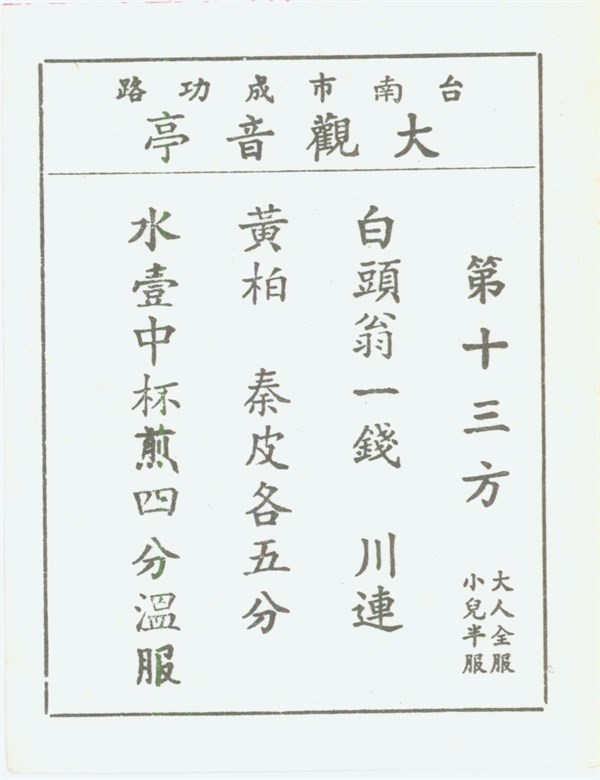 台南市成功路
大觀音亭
第十三方
大人全服
小兒半服
白頭翁一錢 川連
黃柏 秦皮各五分
水壹中杯煎四分溫服